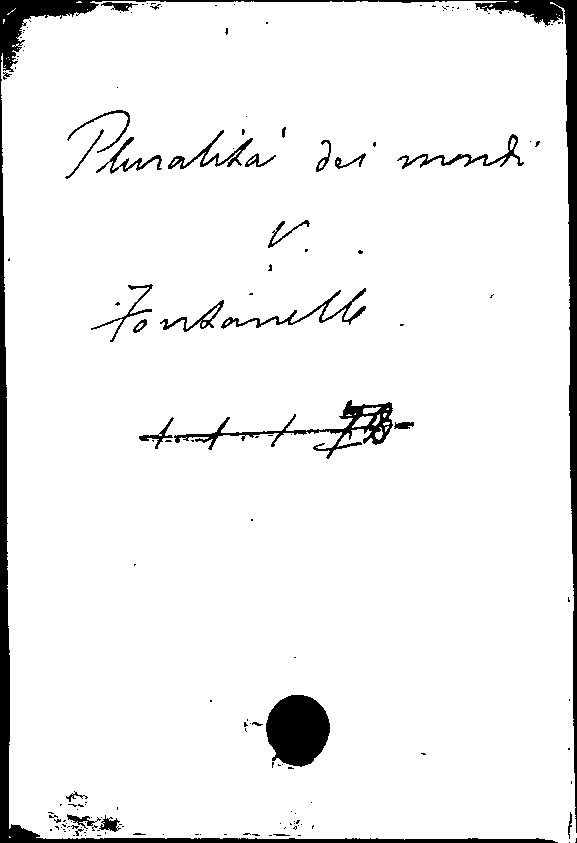 Pluralità dei mondi
V.
Fontanelle.